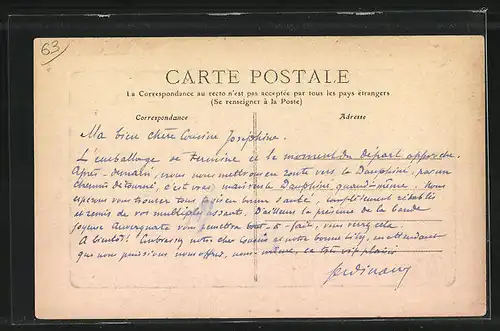 63
CARTE POSTALE
La Correspondance au recto n'est pas acceptée par tous les pays étrangers
(Se renseigner à la Poste)
Correspondance
Adresse
Ma bien chère Cousine Joséphine.
L'emballage se termine et le moment du départ approche.
Après-demain, nous nous mettrons en route vers le Dauphiné, par un
chemin détourné, c'est vrai, mais vers le Dauphiné quand-même. Nous
espérons vous trouver tous en bonne santé, complètement rétablis
et remis de vos multiples assauts. D'ailleurs la présence de la bande
joyeuse auvergnate vous remettra tout-à-fait, vous verrez cela.
A bientôt! Embrassez notre cher Cousin et notre bonne Lily, en attendant
que nous puissions nous offrir, nous-même, ce très vif plaisir
Ferdinand